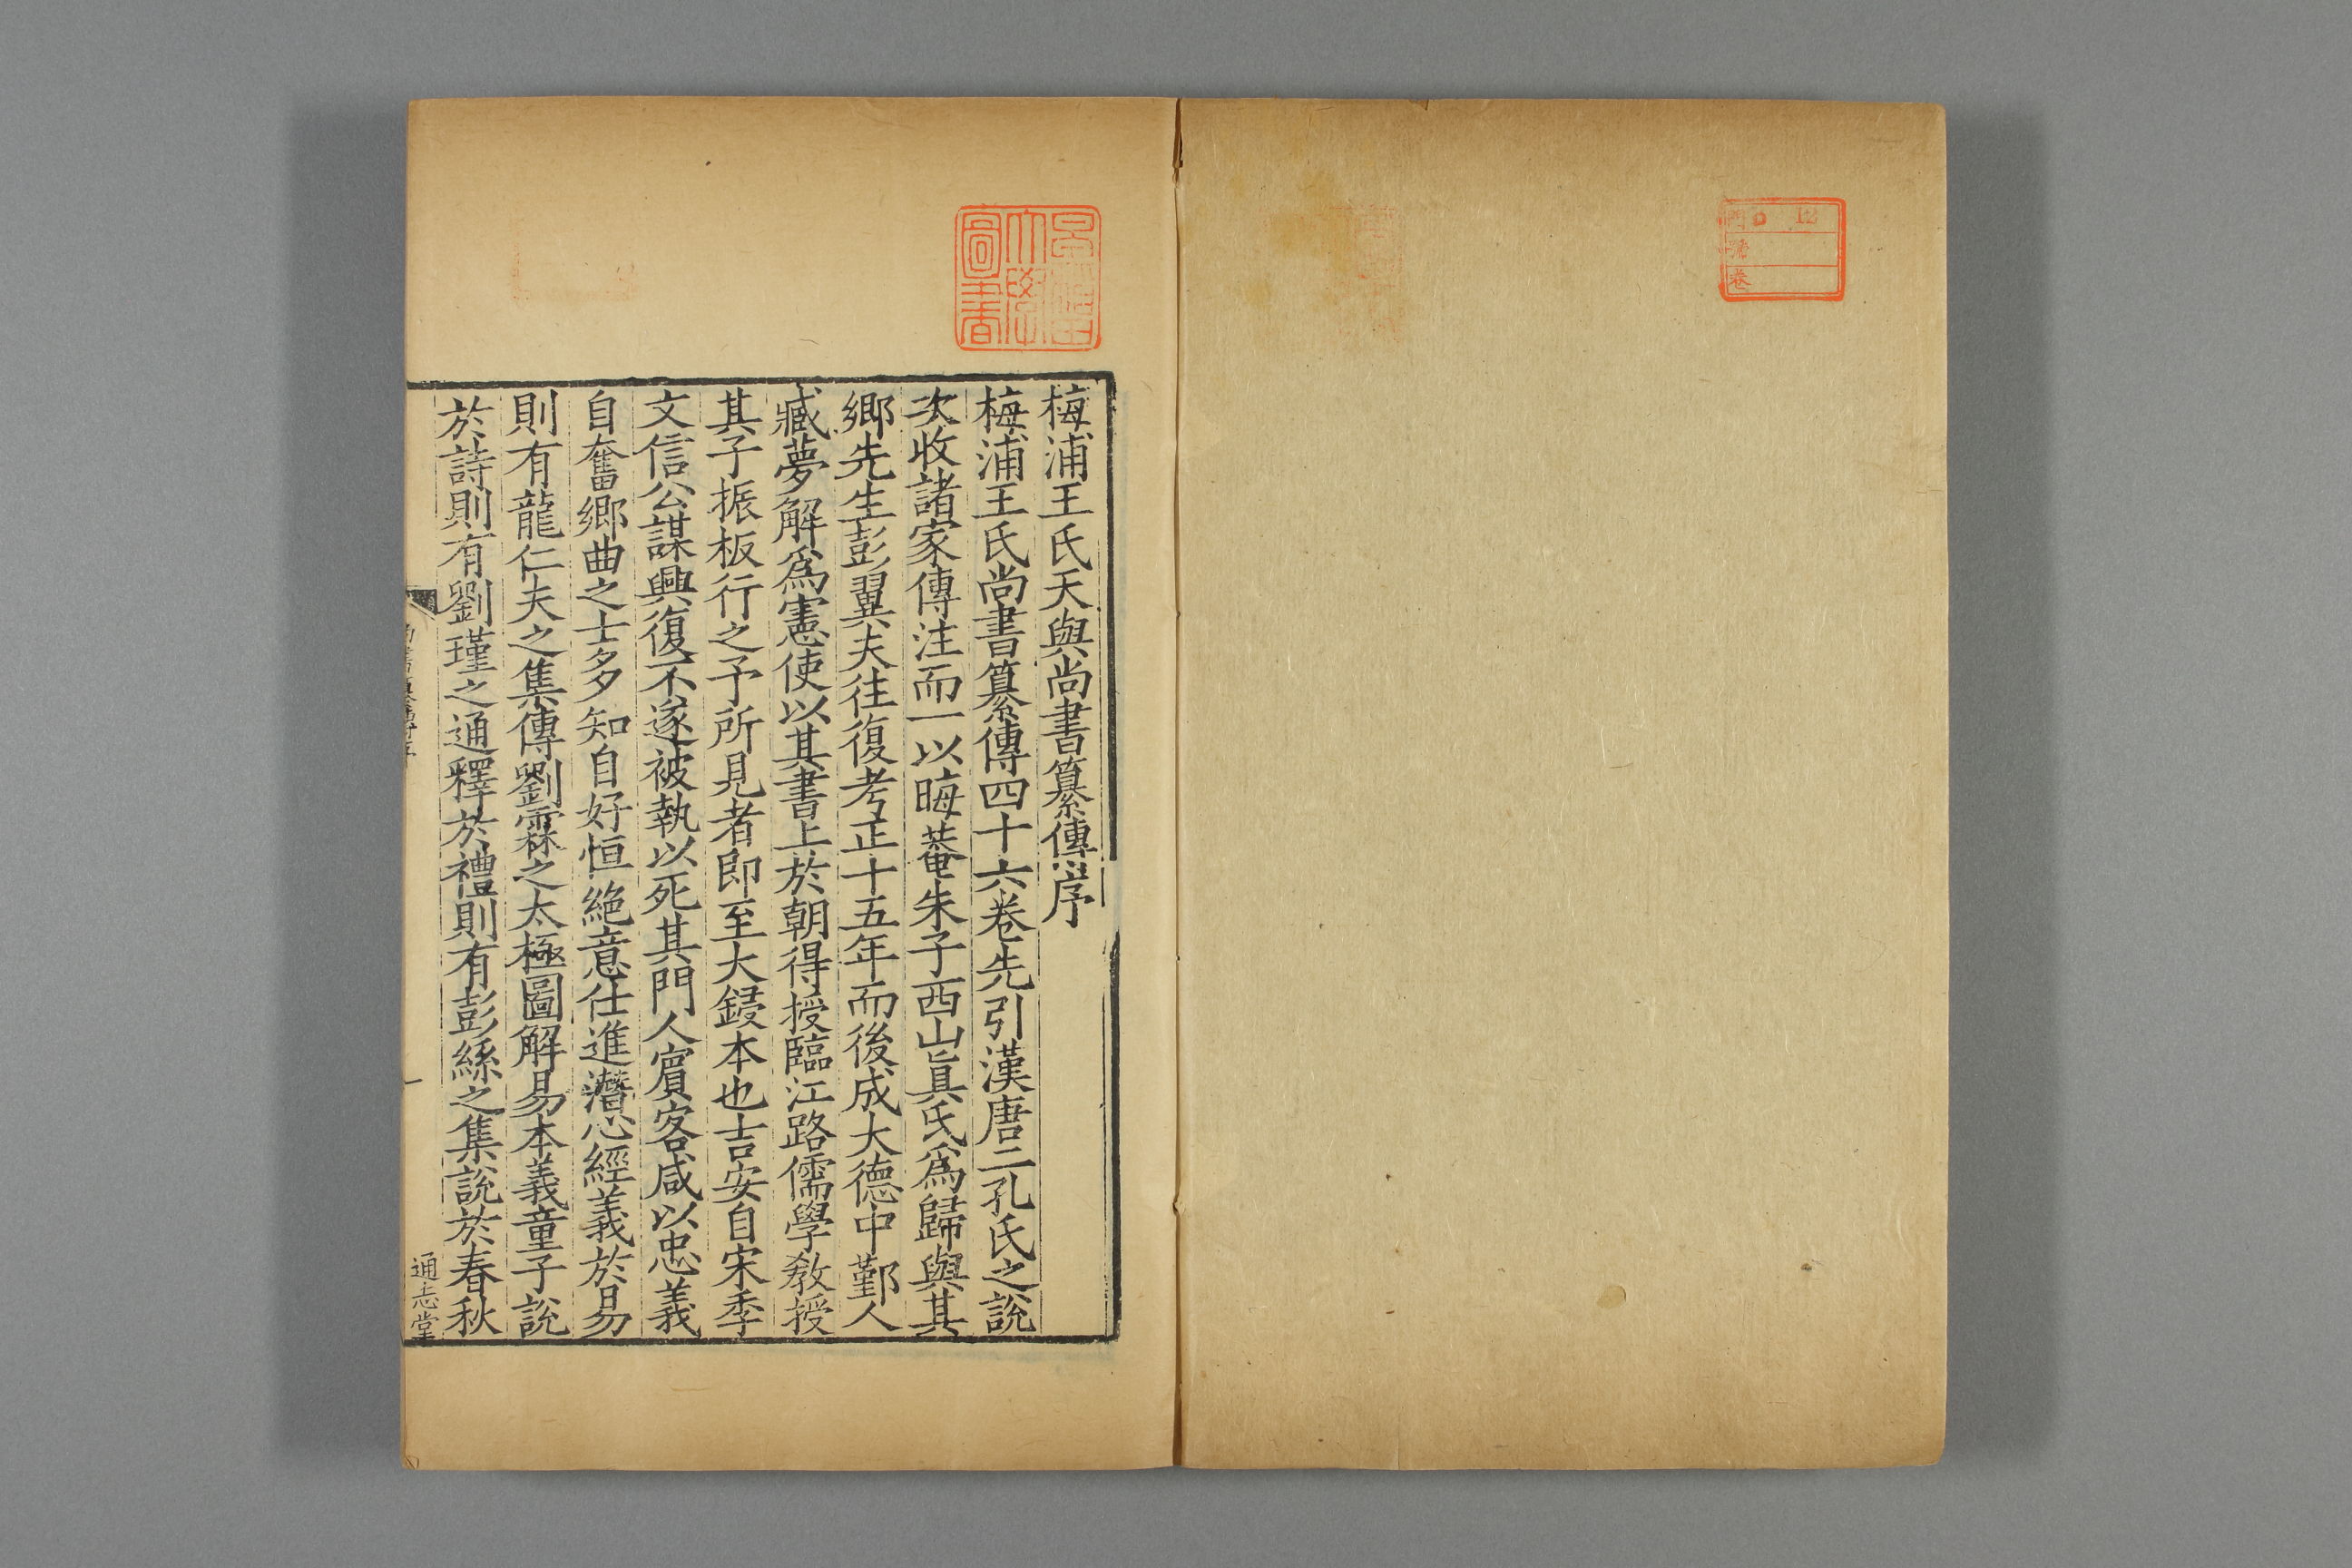 門
號
卷
圖書
梅浦王氏天與尚書纂傳序
梅浦王氏尚書纂傳四十六卷先引漢唐二孔氏之說
次收諸家傳注而一以晦菴朱子西山眞氏爲歸與其
鄉先生彭翼夫往復考正十五年而後成大德中鄞人
臧夢解爲憲使以其書上於朝得授臨江路儒學敎授
其子振板行之予所見者即至大鋟本也吉安自宋季
文信公謀興復不遂被執以死其門人賓客咸以忠義
自奮鄉曲之士多知自好恒絶意仕進潛心經義於易
則有龍仁夫之集傳劉霖之太極圖解易本義童子說
於詩則有劉瑾之通釋於禮則有彭絲之集說於春秋
一
通志堂